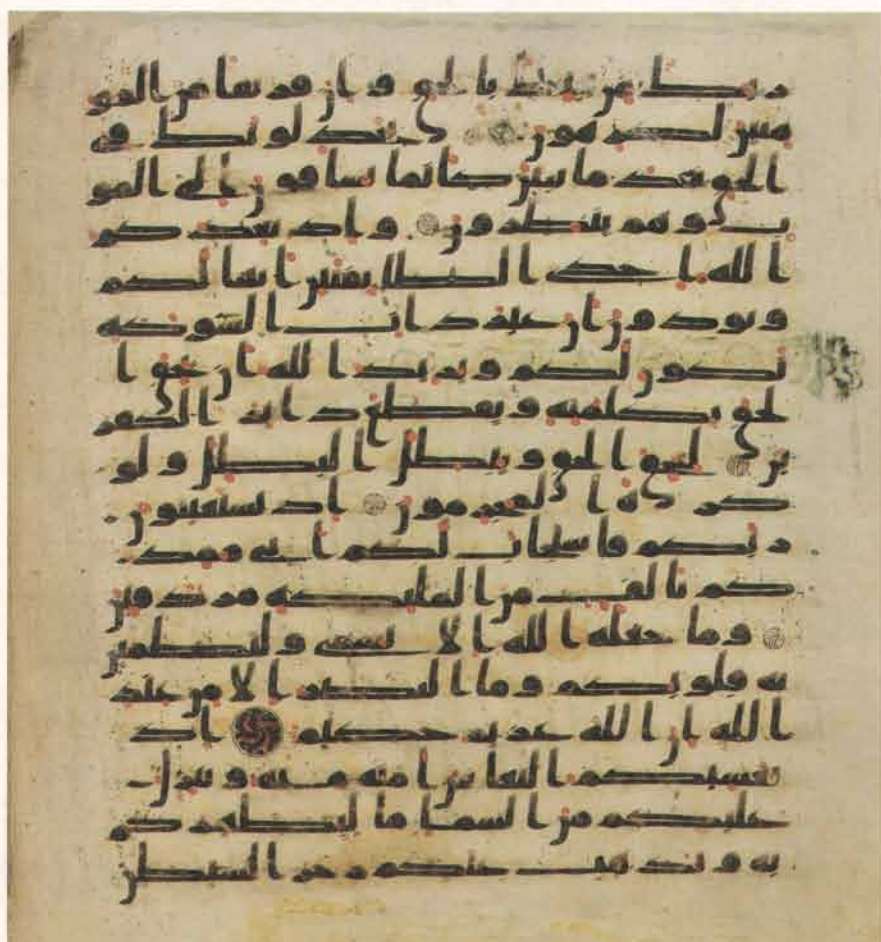 ربك من بيتك بالحق وان فريقا من المو
منين لكرهون يجدلونك في
الحق بعد ما تبين كانما يساقون الى المو
ت وهم ينظرون واذ يعدكم
الله احدى الطايفتين انها لكم
وتودون ان غير ذات الشوكة
تكون لكم ويريد الله ان يحق ا
لحق بكلمته ويقطع دابر الكفر
ين ليحق الحق ويبطل البطل ولو
كره المجرمون اذ تستغيثون
ربكم فاستجاب لكم اني ممد
كم بالف من المليكة مردفين
وما جعله الله الا بشرى ولتطمين
به قلوبكم وما النصر الا من عند
الله ان الله عزيز حكيم اذ
يغشيكم النعاس امنة منه وينزل
عليكم من السما ما ليطهركم
به ويذهب عنكم رجز الشيطن